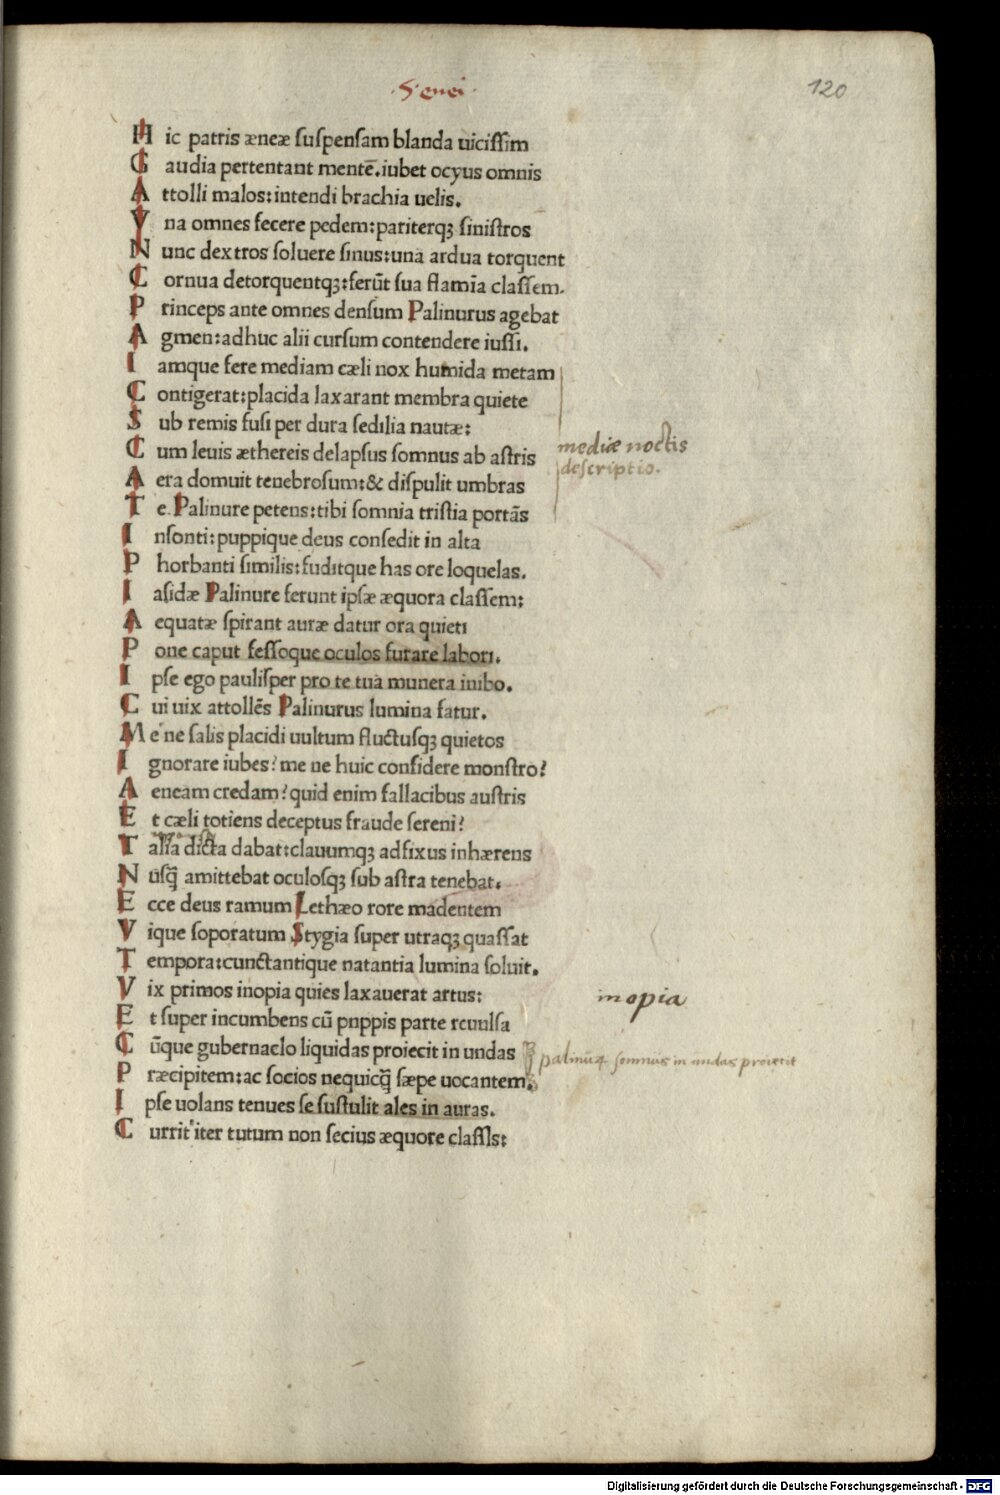 ·5· enei·
120
H ic patris æneæ ſuſpenſam blanda uiciſſim
G audia pertentant mentē.iubet ocyus omnis
A ttolli malos:intendi brachia uelis.
V na omnes fecere pedem:pariterqꝫ ſiniſtros
N unc dextros ſoluere ſinus:una ardua torquent
C ornua detorquentqꝫ:ferūt ſua flamīa claſſem.
P rinceps ante omnes denſum Palinurus agebat
A gmen:adhuc alii curſum contendere iuſſi.
I amque fere mediam cæli nox humida metam
C ontigerat:placida laxarant membra quiete
S ub remis fuſi per dura ſedilia nautæ:
C um leuis æthereis delapſus ſomnus ab aſtris
mediæ noctis
deſcriptio.
A era domuit tenebroſum:& diſpulit umbras
T e.Palinure petens:tibi ſomnia triſtia portās
I nſonti:puppique deus conſedit in alta
P horbanti ſimilis:fuditque has ore loquelas.
I aſidæ Palinure ferunt ipſæ æquora claſſem:
A equatæ ſpirant auræ datur ora quieti
P one caput feſſoque oculos furare labori.
I pſe ego pauliſper pro te tua munera inibo.
C ui uix attollēs Palinurus lumina fatur.
M e ne ſalis placidi uultum fluctuſqꝫ quietos
I gnorare iubes? me ne huic confidere monſtro?
A eneam credam? quid enim fallacibus auſtris
E t cæli totiens deceptus fraude ſereni?
T alia dicta dabat:clauumqꝫ adfixus inhærens
N uſq̄ amittebat oculoſqꝫ ſub aſtra tenebat.
E cce deus ramum Lethæo rore madentem
V ique ſoporatum Stygia ſuper utraqꝫ quaſſat
T empora:cunctantique natantia lumina ſoluit.
V ix primos inopia quies laxauerat artus:
inopia
E t ſuper incumbens cū pnppis parte reuulſa
C ūque gubernaclo liquidas proiecit in undas
ſomnus in undas proiecit
P ræcipitem:ac ſocios nequicq̄ ſæpe uocantem.
I pſe uolans tenues ſe ſuſtulit ales in auras.
C urrit iter tutum non ſecius æquore claſſls:
Digitalisierung gefördert durch die Deutsche Forschungsgemeinschaft - DFG